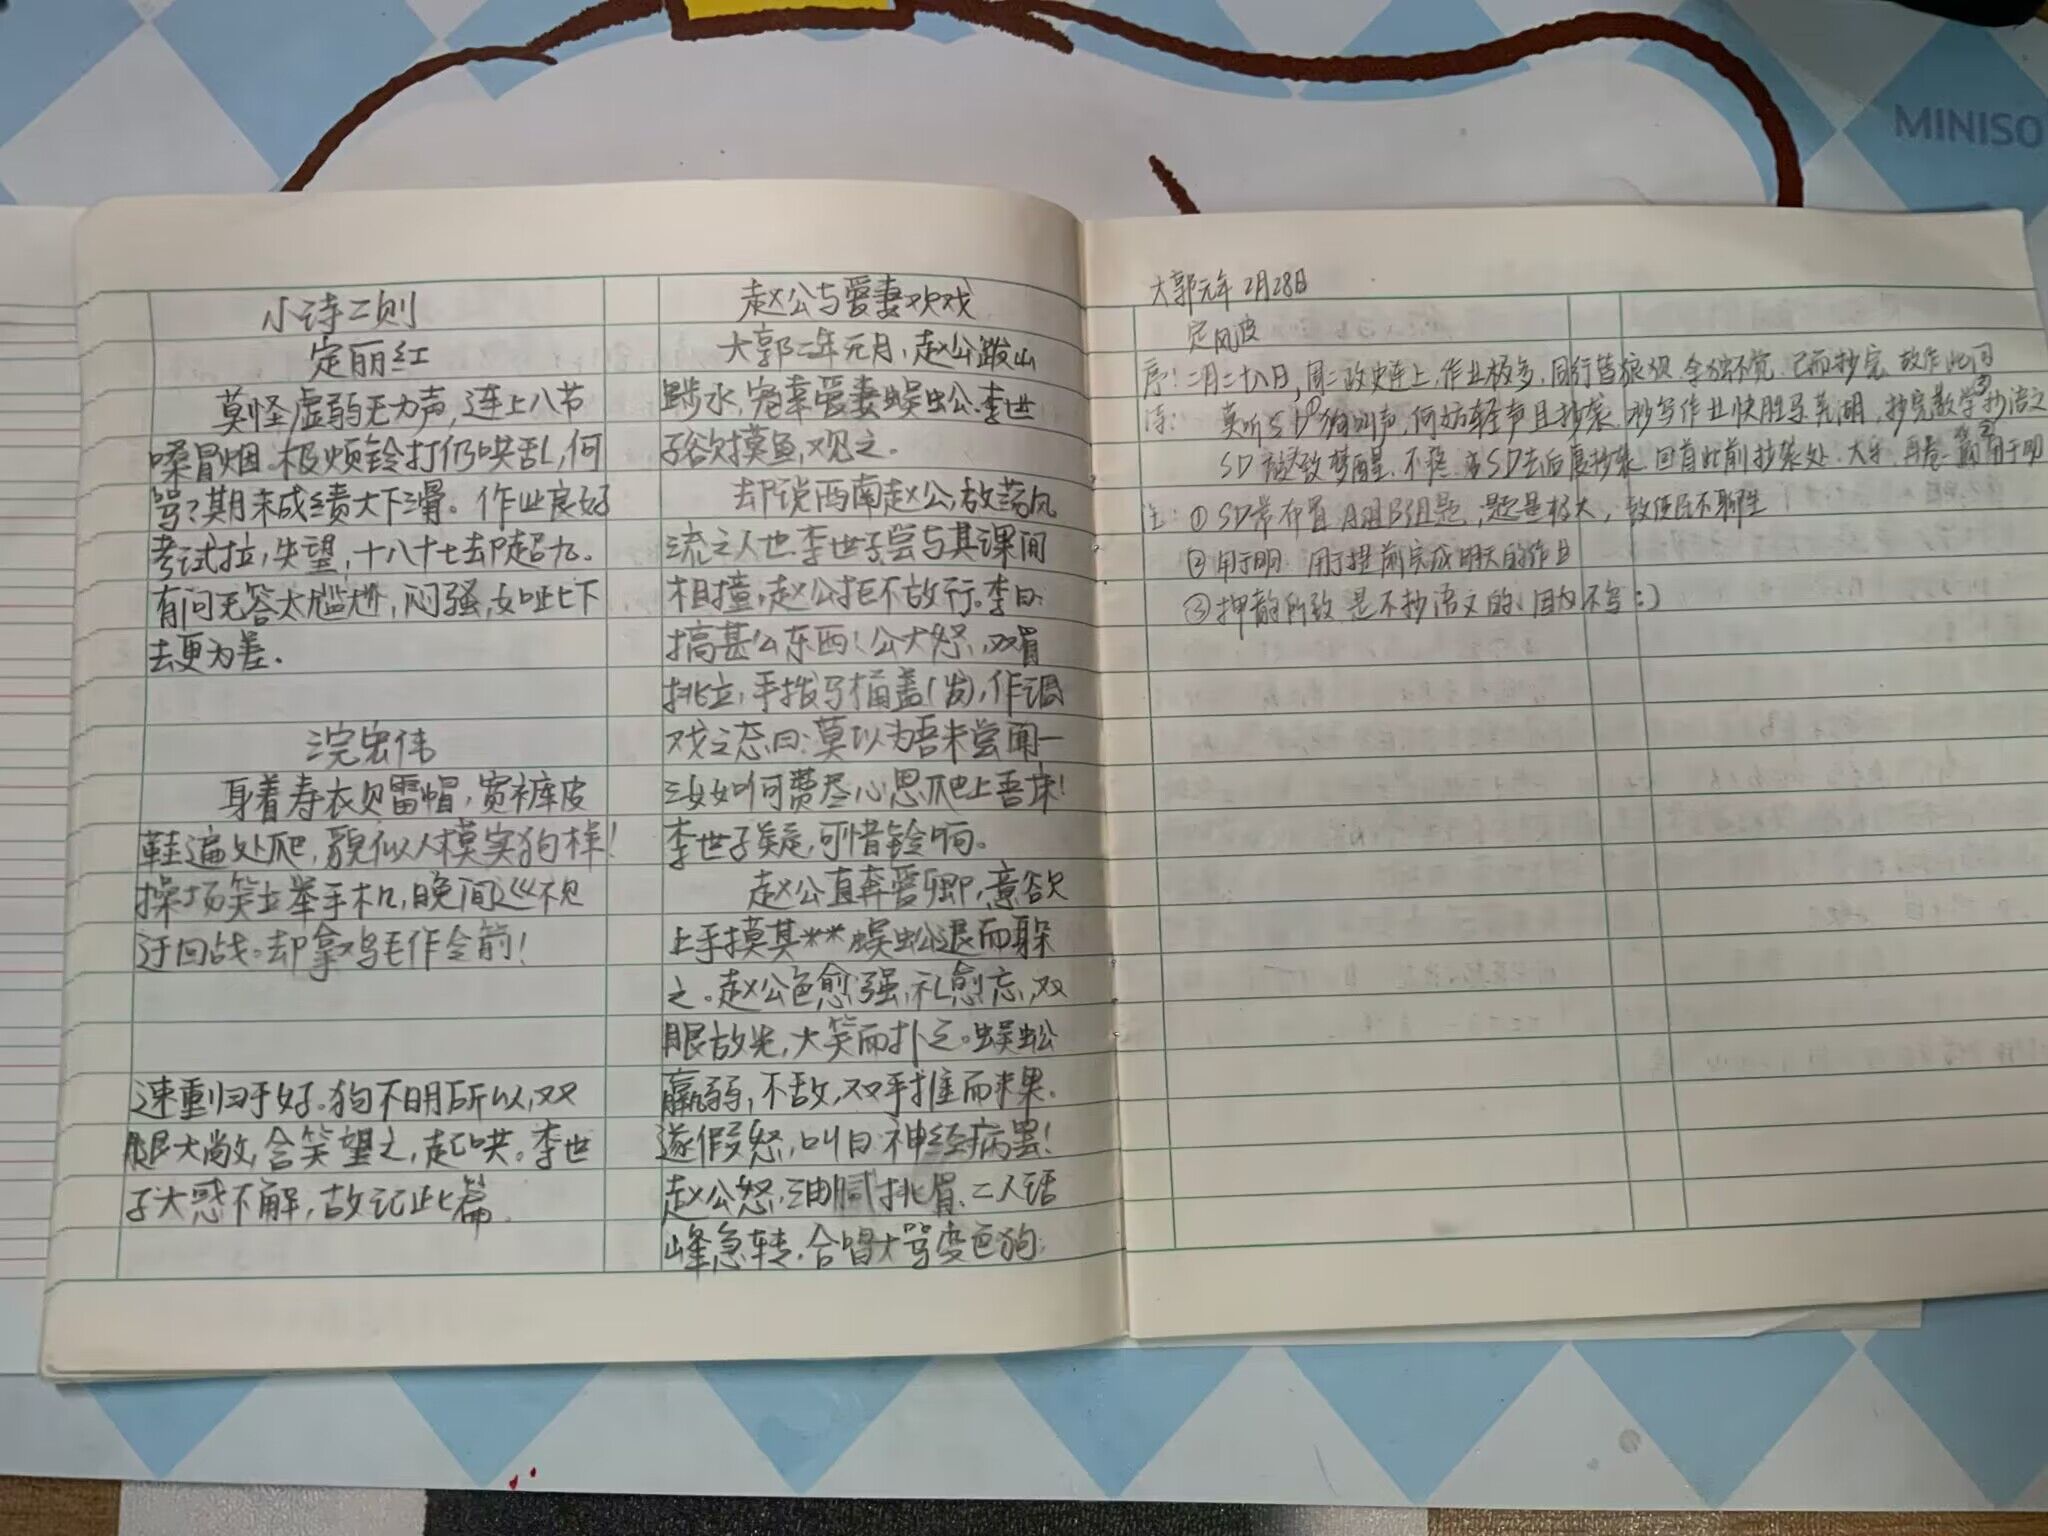 MINISO
小诗二则
定丽红
莫怪虚弱无力声,连上八节
嗓冒烟。极烦铃打仍哄乱,何
骂?期末成绩大下滑。作业良好
考试拉,失望,十八十七却超九。
有问无答太尴尬,闷骚,如此下
去更为差.
浣宏伟
身着寿衣贝雷帽,宽裤皮
鞋遍处爬,貌似人模实狗样!
操场笑与举手机,晚间巡视
迂回战。却拿鸡毛作令箭!
速重归于好。狗不明所以,双
腿大敞,含笑望之,起哄。李世
子大惑不解,故记此篇.
赵公与爱妻欢戏
大郭二年元月,赵公跋山
涉水,宠幸爱妻蜈蚣公.李世
子欲摸鱼,观之.
却说西南赵公,放荡风
流之人也.李世子尝与其课间
相撞,赵公拒不放行.李曰:
搞甚么东西!公大怒,双眉
挑立,手拨马桶盖(发),作调
戏之态,曰:莫以为吾未尝闻一
三女如何费尽心思爬上吾床!
李世子疑,可惜铃响。
赵公直奔爱卿,意欲
上手摸其**.蜈蚣退而躲
之.赵公色愈强,礼愈忘,双
眼放光,大笑而扑之。蜈蚣
羸弱,不敌,双手推而未果.
遂假怒,叫曰:神经病罢!
赵公怒,油腻挑眉.二人话
峰急转.合唱大骂变色狗;
大郭元年 2月28日
定风波
序:二月二十八日,周二政史连上,作业极多,同行皆狼狈,余独不觉.已而抄完,故作此词
诗: 莫听SD①狗叫声,何妨轻声且抄袭.抄写作业快胜马 芜湖,抄完数学抄语文③
SD 致梦醒.不稳.SD去后展抄袭.回首此前抄袭处.大乐.再卷 用于明
注:①SD常布置A组B组题,题量极大,致使民不聊生
②用于明:用于提前完成明天的作业
③押韵所致.是不抄语文的、因为不写:)